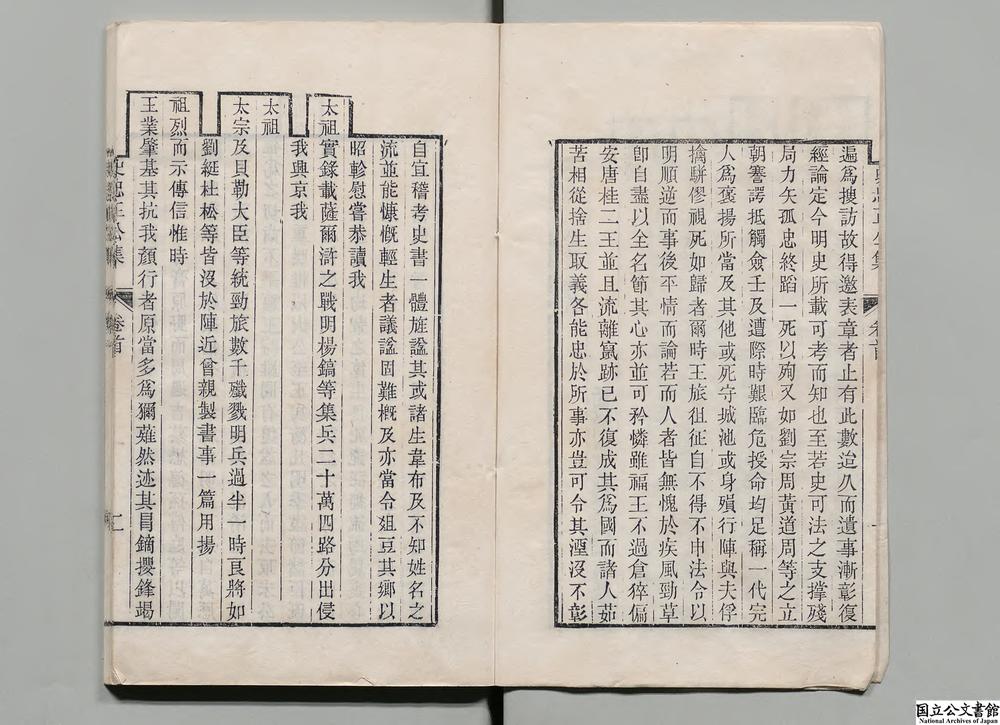 遍爲搜訪故得邀表章者止有此數迨久而遺事漸彰復
經論定今明史所載可考而知也至若史可法之支撐殘
局力矢孤忠終蹈一死以殉又如劉宗周黃道周等之立
朝謇諤抵觸僉壬及遭際時艱臨危授命均足稱一代完
人爲褒揚所當及其他或死守城池或身殞行陣與夫俘
擒駢僇視死如歸者爾時王旅徂征自不得不申法令以
明順逆而事後平情而論若而人者皆無愧於疾風勁草
卽自盡以全名節其心亦並可矜憐雖福王不過倉猝偏
安唐桂二王並且流離竄跡已不復成其爲國而諸人茹
苦相從捨生取義各能忠於所事亦豈可令其湮沒不彰
自宜稽考史書一體旌諡其或諸生韋布及不知姓名之
流並能慷慨輕生者議諡固難槪及亦當令俎豆其鄉以
昭軫慰嘗恭讀我
太祖實錄載薩爾滸之戰明楊鎬等集兵二十萬四路分出侵
我興京我
太祖
太宗及貝勒大臣等統勁旅數千殲戮明兵過半一時良將如
劉綎杜松等皆沒於陣近曾親製書事一篇用揚
祖烈而示傳信惟時
王業肇基其抗我顏行者原當多爲獮薙然迹其冒鏑攖鋒竭
史忠正公集
卷首
二
國立公文書館
National Archives of Japan